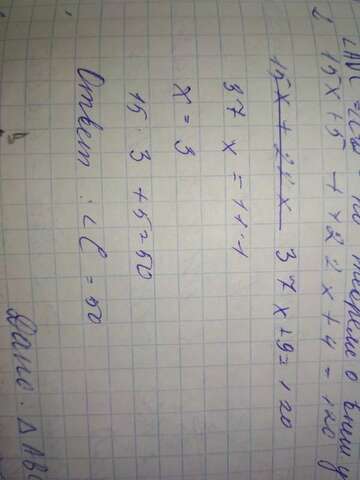 по теореме о внеш у
15x + 5 + 22x + 4 = 120
15x + 22x 37x + 9 = 120
37x = 111
x = 3
15 · 3 + 5 = 50
Ответ: ∠C = 50
Дано: △ABC